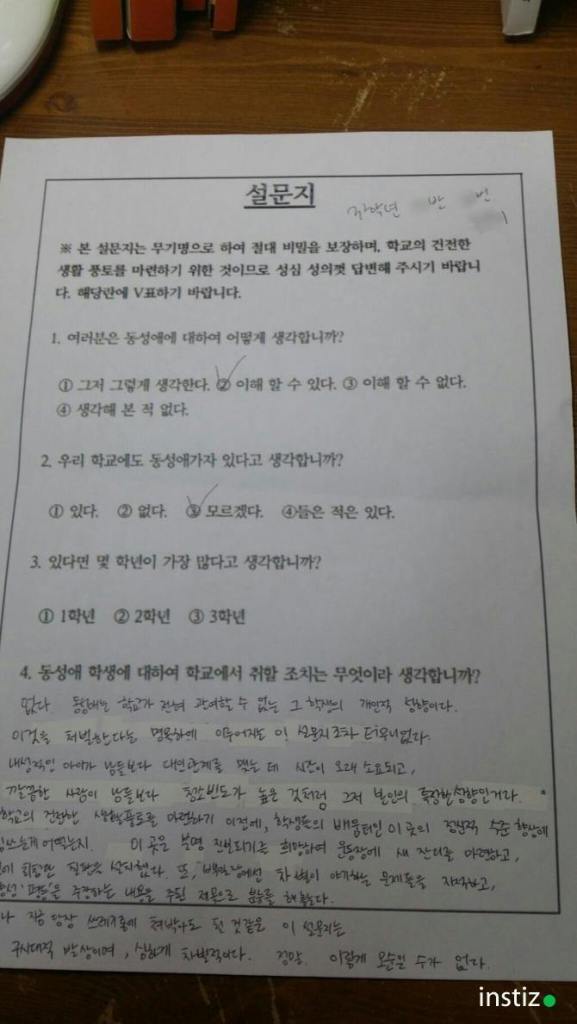 설문지
학년 반 번
※ 본 설문지는 무기명으로 하여 절대 비밀을 보장하며, 학교의 건전한
생활 풍토를 마련하기 위한 것이므로 성심 성의껏 답변해 주시기 바랍니
다. 해당란에 V표하기 바랍니다.
1. 여러분은 동성애에 대하여 어떻게 생각합니까?
① 그저 그렇게 생각한다. ② 이해 할 수 있다. ③ 이해 할 수 없다.
④ 생각해 본 적 없다.
2. 우리 학교에도 동성애가자 있다고 생각합니까?
① 있다. ② 없다. ③ 모르겠다. ④들은 적은 있다.
3. 있다면 몇 학년이 가장 많다고 생각합니까?
① 1학년 ② 2학년 ③ 3학년
4. 동성애 학생에 대하여 학교에서 취할 조치는 무엇이라 생각합니까?
없다. 동성애는 학교가 전혀 관여할 수 없는 그 학생의 개인적 성향이다.
이것을 처벌한다는 명목하에 이루어지는 이 설문지조차 터무니없다.
내성적인 아이가 남들보다 대인관계를 맺는 데 시간이 오래 소요되고,
깔끔한 사람이 남들보다 청소빈도가 높은 것처럼 그저 본인의 특징한 성향인거라.
학교의 건전한 생활풍토를 마련하기 이전에, 학생들의 배움터인 이 곳의 전반적 수준 향상에
힘쓰는게 어떻는지. 이 곳은 분명 진보되기를 희망하여 운동장에 새 잔디를 마련하고,
설치했다. 또, 차별이 야기하는 문제들을 지적하고,
'평등'을 주장하는 내용을 주된 제목으로
지금 당장 쓰레기통에 처박아도 될 것같은 이 설문지는
구시대적 발상이며, 심하게 차별적이다. 정말. 이렇게 모순일 수가 없다.
instiz